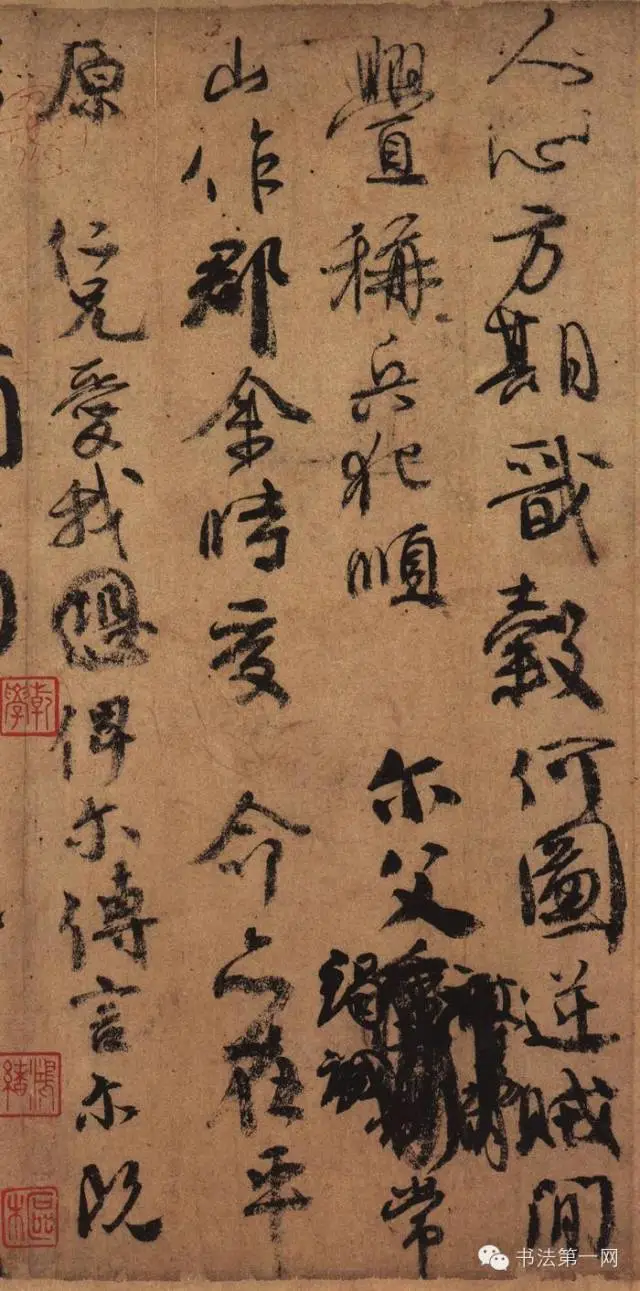 人心方期戩穀何圖逆賊間
釁稱兵犯順 尓父竭誠常
山作郡余時受 命亦在平
原 仁兄愛我俾尓傳言尓既
乾學
書法第一网